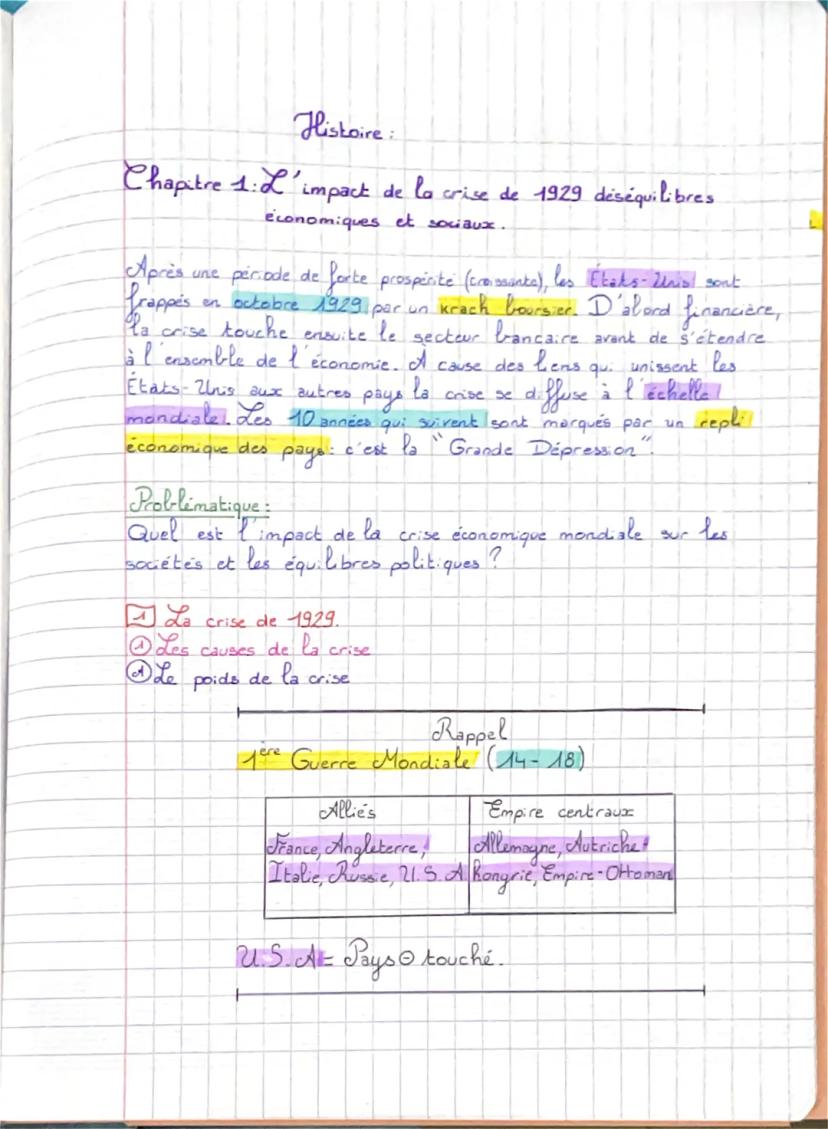 Histoire :
Chapitre 1 : L'impact de la crise de 1929 déséquilibres
économiques et sociaux.
Après une période de forte prospérité (croissante), les États-Unis sont
frappés en octobre 1929 par un krach boursier. D'abord financière,
la crise touche ensuite le secteur bancaire avant de s'étendre
à l'ensemble de l'économie. A cause des liens qui unissent les
États-Unis aux autres pays la crise se diffuse à l'échelle
mondiale. Les 10 années qui suivent sont marqués par un repli
économique des pays : c'est la "Grande Dépression".
Problématique :
Quel est l'impact de la crise économique mondiale sur les
sociétés et les équilibres politiques ?
1 La crise de 1929.
1 Les causes de la crise
A Le poids de la crise
Rappel
1ère Guerre Mondiale (14-18)
Alliés
Empire centraux
France, Angleterre,
Italie, Russie, U.S.A
Allemagne, Autriche-
Hongrie, Empire-Ottoman
U.S.A = Pays ⊖ touché.